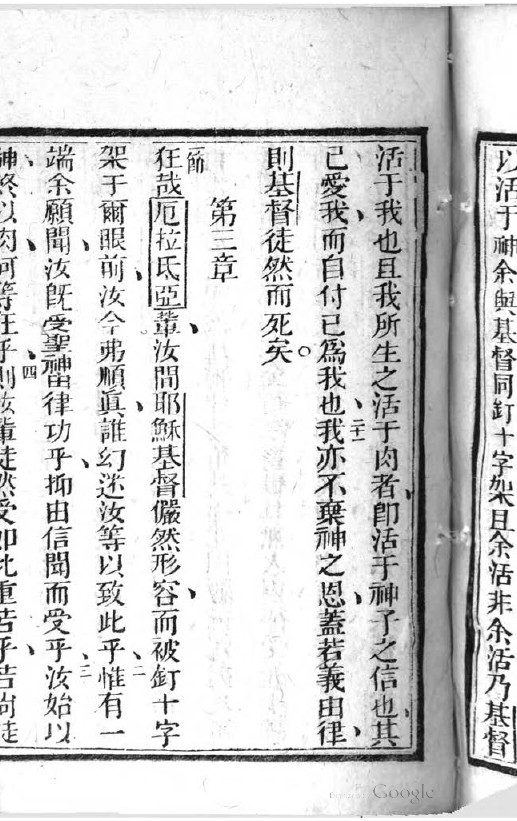 以活于神余與基督同釘十字架且余活非余活乃基督
活于我也且我所生之活于肉者即活于神子之信也其
己愛我、而自付己爲我也、二十一我亦不棄神之恩、蓋若義由律、
則基督徒然而死矣。
第三章
一節狂哉厄拉氐亞輩、汝間耶穌基督儼然形容、而被釘十字
架于爾眼前、汝今弗順眞、誰幻迷汝等以致此乎、二惟有一
端、余願聞、汝旣受聖神、由律功乎、抑由信聞而受乎、三汝始以
神終以肉、何等狂乎、四則汝輩徒然受如此重苦乎、若尚徒
Google